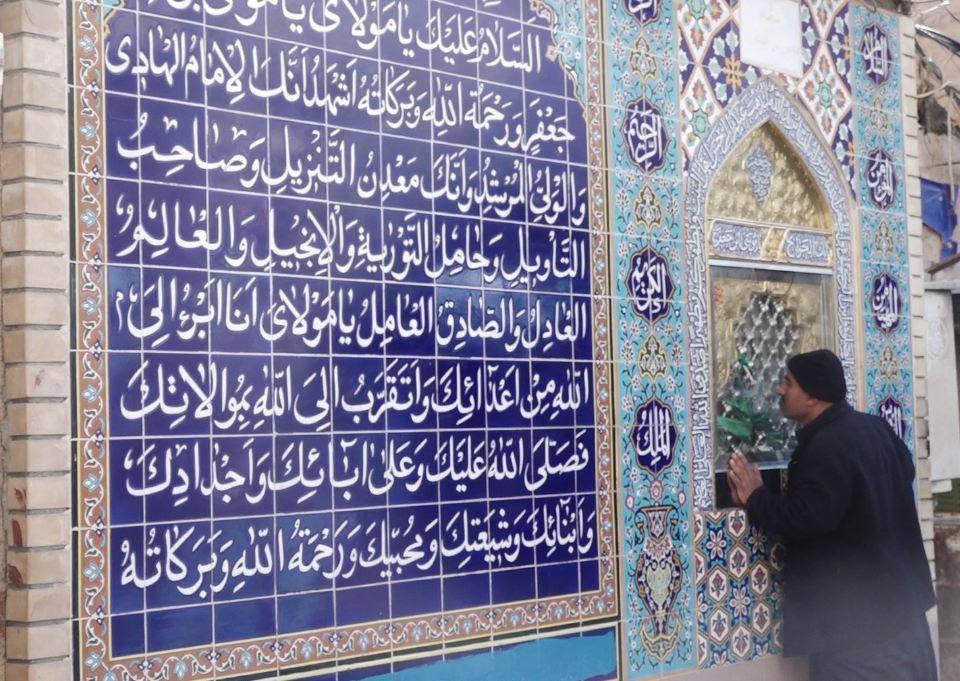 السَّلامُ عَلَيْكَ يا مَوْلايَ يا مُوسَى بْنَ
جَعْفَرٍ وَرَحْمَةُ اللهِ وَبَرَكاتُهُ اَشْهَدُ اَنَّكَ الاِمامُ الهادى
وَالْوَلِىُّ الْمُرْشِدُ وَاَنَّكَ مَعْدِنُ التَّنْزيلِ وَصاحِبُ
التَّأْويلِ وَحامِلُ التَّوْريةِ وَالاِنْجيلِ وَالْعالِمُ
الْعادِلُ وَالصّادِقُ الْعامِلُ يا مَوْلاىَ اَنَا اَبْرَءُ اِلَى
اللهِ مِنْ اَعْدائِكَ وَاَتَقَرَّبُ اِلَى اللهِ بِمُوالاتِكَ
فَصَلَّى اللهُ عَلَيْكَ وَعَلى ابائِكَ وَاَجْدادِكَ
وَاَبْنائِكَ وَشيعَتِكَ وَمُحِبّيكَ وَرَحْمَةُ اللهِ وَبَرَكاتُهُ
الرحيم
الكريم
الملك